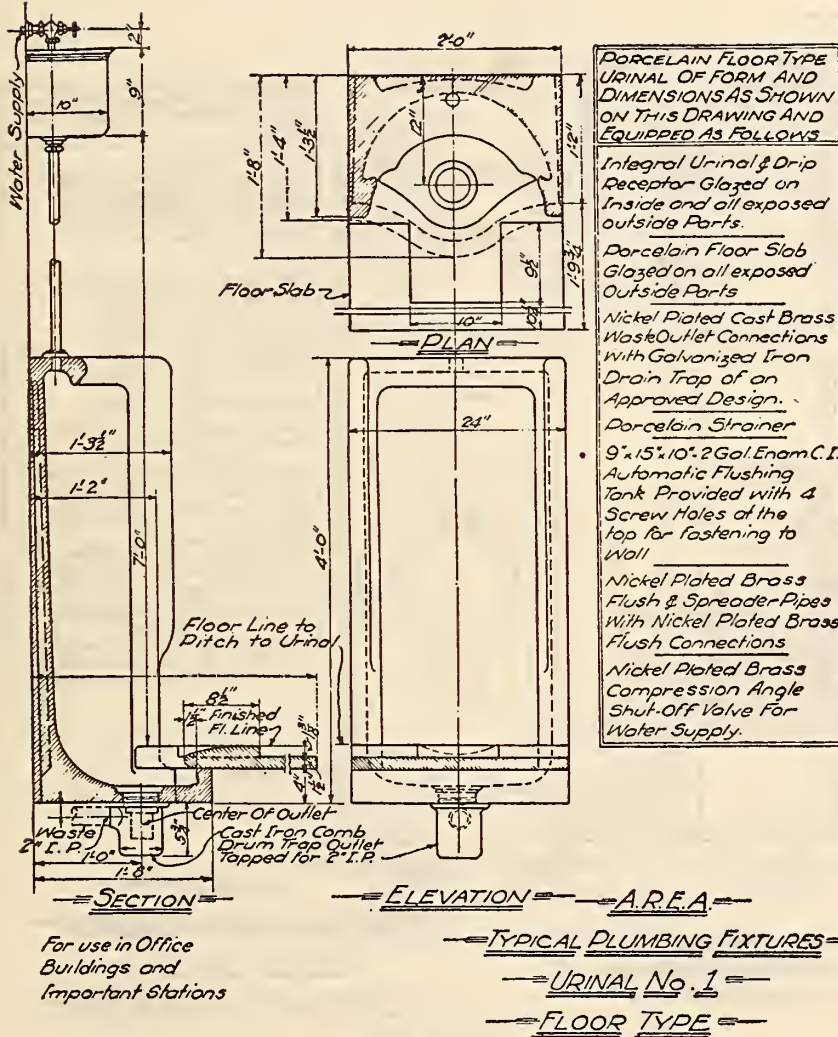 2"
Water Supply
10"
9"
2'-0"
1'-8"
1'-4"
1'-3½"
12"
1'-2"
1'-9¾"
9½"
10½"
10"
Floor Slab
PLAN
1'-3½"
1'-2"
7'-0"
4'-0"
24"
Floor Line to
Pitch to Urinal
8½"
1½"
Finished
Fl. Line
4"
1½"
Center Of Outlet
Waste
2" I.P.
Cast Iron Comb
Drum Trap Outlet
Tapped for 2" I.P.
1'-0"
1'-8"
SECTION
ELEVATION
For use in Office
Buildings and
Important Stations
PORCELAIN FLOOR TYPE
URINAL OF FORM AND
DIMENSIONS AS SHOWN
ON THIS DRAWING AND
EQUIPPED AS FOLLOWS
Integral Urinal & Drip
Receptor Glazed on
Inside and all exposed
outside Parts.
Porcelain Floor Slab
Glazed on all exposed
Outside Parts
Nickel Plated Cast Brass
Waste Outlet Connections
With Galvanized Iron
Drain Trap of an
Approved Design.
Porcelain Strainer
9"x15"x10"-2 Gal. Enam. C.I.
Automatic Flushing
Tank Provided with 4
Screw Holes at the
top for fastening to
Wall
Nickel Plated Brass
Flush & Spreader Pipes
With Nickel Plated Brass
Flush Connections
Nickel Plated Brass
Compression Angle
Shut-Off Valve For
Water Supply.
A.R.E.A.
TYPICAL PLUMBING FIXTURES
URINAL No. 1
FLOOR TYPE